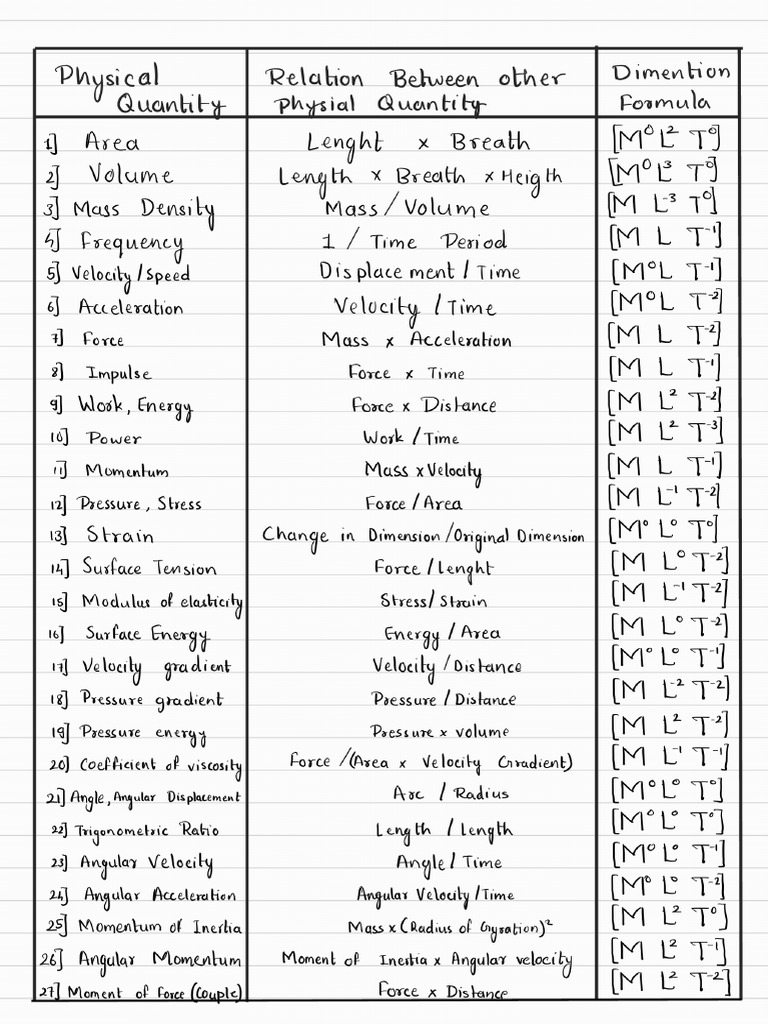 Physical Quantity | Relation Between other Physial Quantity | Dimention Formula
1] Area | Lenght x Breath | [M⁰ L² T⁰]
2] Volume | Length x Breath x Heigth | [M⁰ L³ T⁰]
3] Mass Density | Mass/Volume | [M L⁻³ T⁰]
4] Frequency | 1 / Time Period | [M L T⁻¹]
5] Velocity/Speed | Displacement/Time | [M⁰L T⁻¹]
6] Acceleration | Velocity /Time | [M⁰L T⁻²]
7] Force | Mass x Acceleration | [M L T⁻²]
8] Impulse | Force x Time | [M L T⁻¹]
9] Work, Energy | Force x Distance | [M L² T⁻²]
10] Power | Work/Time | [M L² T⁻³]
11] Momentum | Mass x Velocity | [M L T⁻¹]
12] Pressure, Stress | Force/Area | [M L⁻¹ T⁻²]
13] Strain | Change in Dimension/Original Dimension | [M⁰ L⁰ T⁰]
14] Surface Tension | Force/Lenght | [M L⁰ T⁻²]
15] Modulus of elasticity | Stress/Strain | [M L⁻¹ T⁻²]
16] Surface Energy | Energy/Area | [M L⁰ T⁻²]
17] Velocity gradient | Velocity/Distance | [M⁰ L⁰ T⁻¹]
18] Pressure gradient | Pressure/Distance | [M L⁻² T⁻²]
19] Pressure energy | Pressure x volume | [M L² T⁻²]
20] Coefficient of viscosity | Force/(Area x Velocity Gradient) | [M L⁻¹ T⁻¹]
21] Angle, Angular Displacement | Arc / Radius | [M⁰ L⁰ T⁰]
22] Trigonometric Ratio | Length / Length | [M⁰ L⁰ T⁰]
23] Angular Velocity | Angle/Time | [M⁰ L⁰ T⁻¹]
24] Angular Acceleration | Angular Velocity/Time | [M⁰ L⁰ T⁻²]
25] Momentum of Inertia | Mass x (Radius of Gyration)² | [M L² T⁰]
26] Angular Momentum | Moment of Inertia x Angular velocity | [M L² T⁻¹]
27] Moment of Force (Couple) | Force x Distance | [M L² T⁻²]